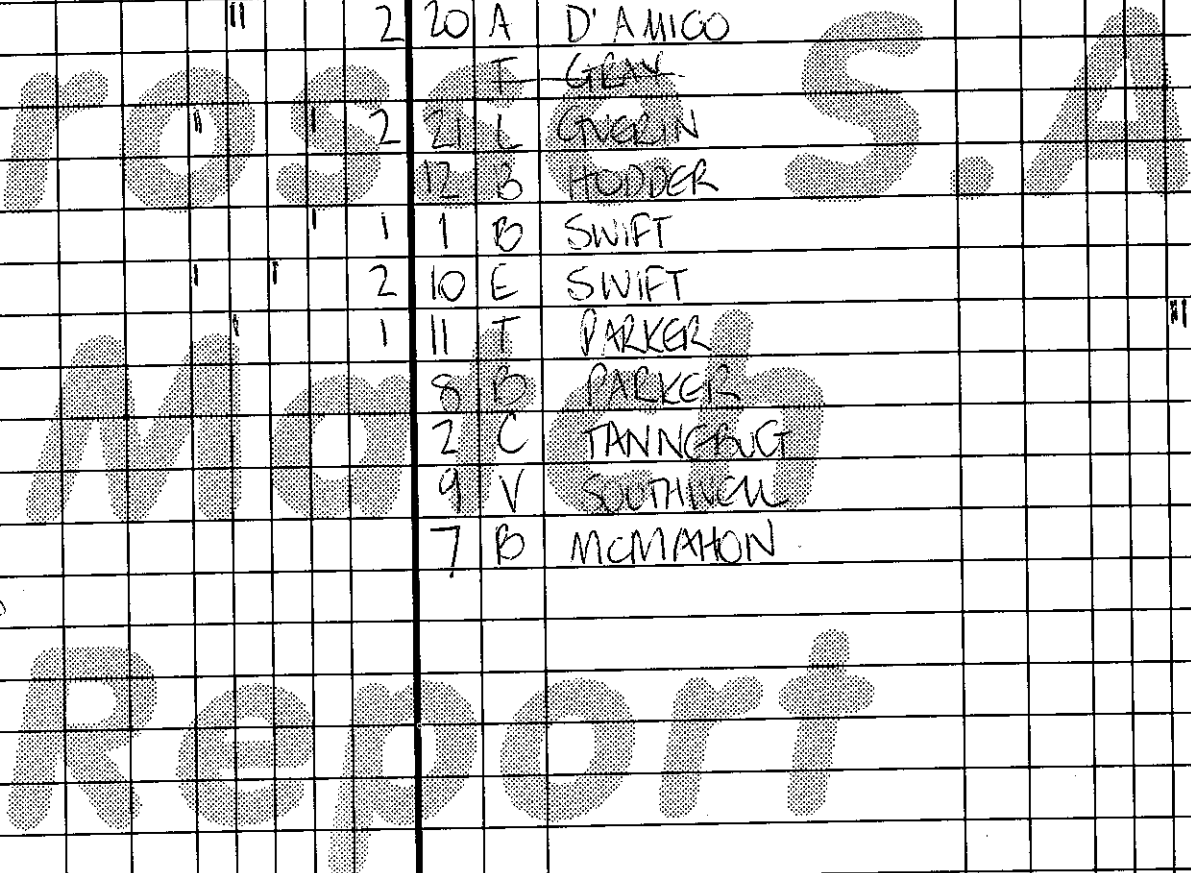 2 20 A D'AMICO
T GRAY
2 21 L GUERIN
12 B HODDER
1 1 B SWIFT
2 10 E SWIFT
1 11 T PARKER
8 B PARKER
2 C TANNEBUG
9 V SOUTHWELL
7 B MCMAHON
rosse S.A
Match
Report